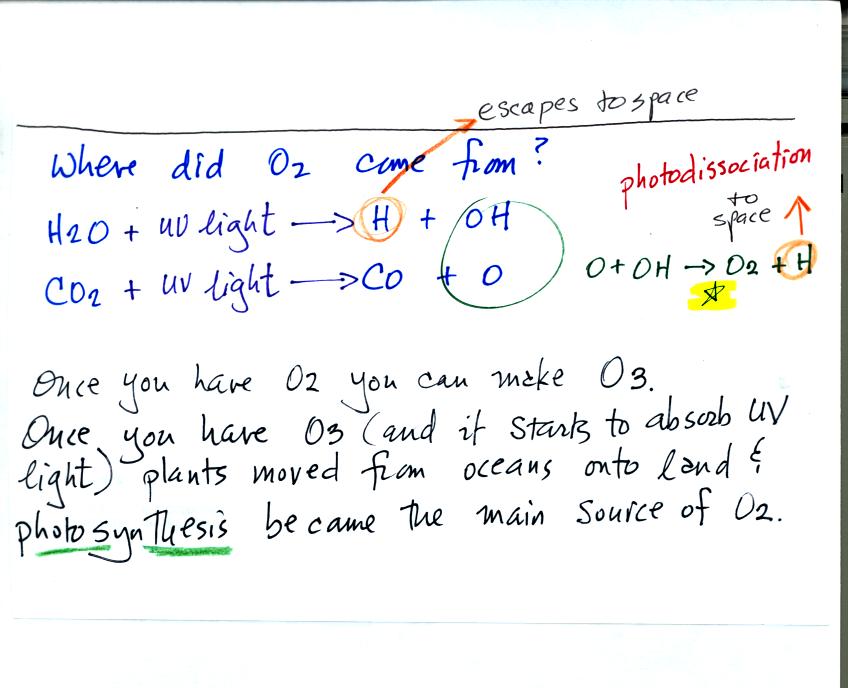 escapes to space
Where did O2 come from?
photodissociation
to
space
H2O + UV light → H + OH
CO2 + UV light → CO + O
O + OH → O2 + H
Once you have O2 you can make O3.
Once you have O3 (and it starts to absorb UV
light) plants moved from oceans onto land &
photosynthesis became the main source of O2.